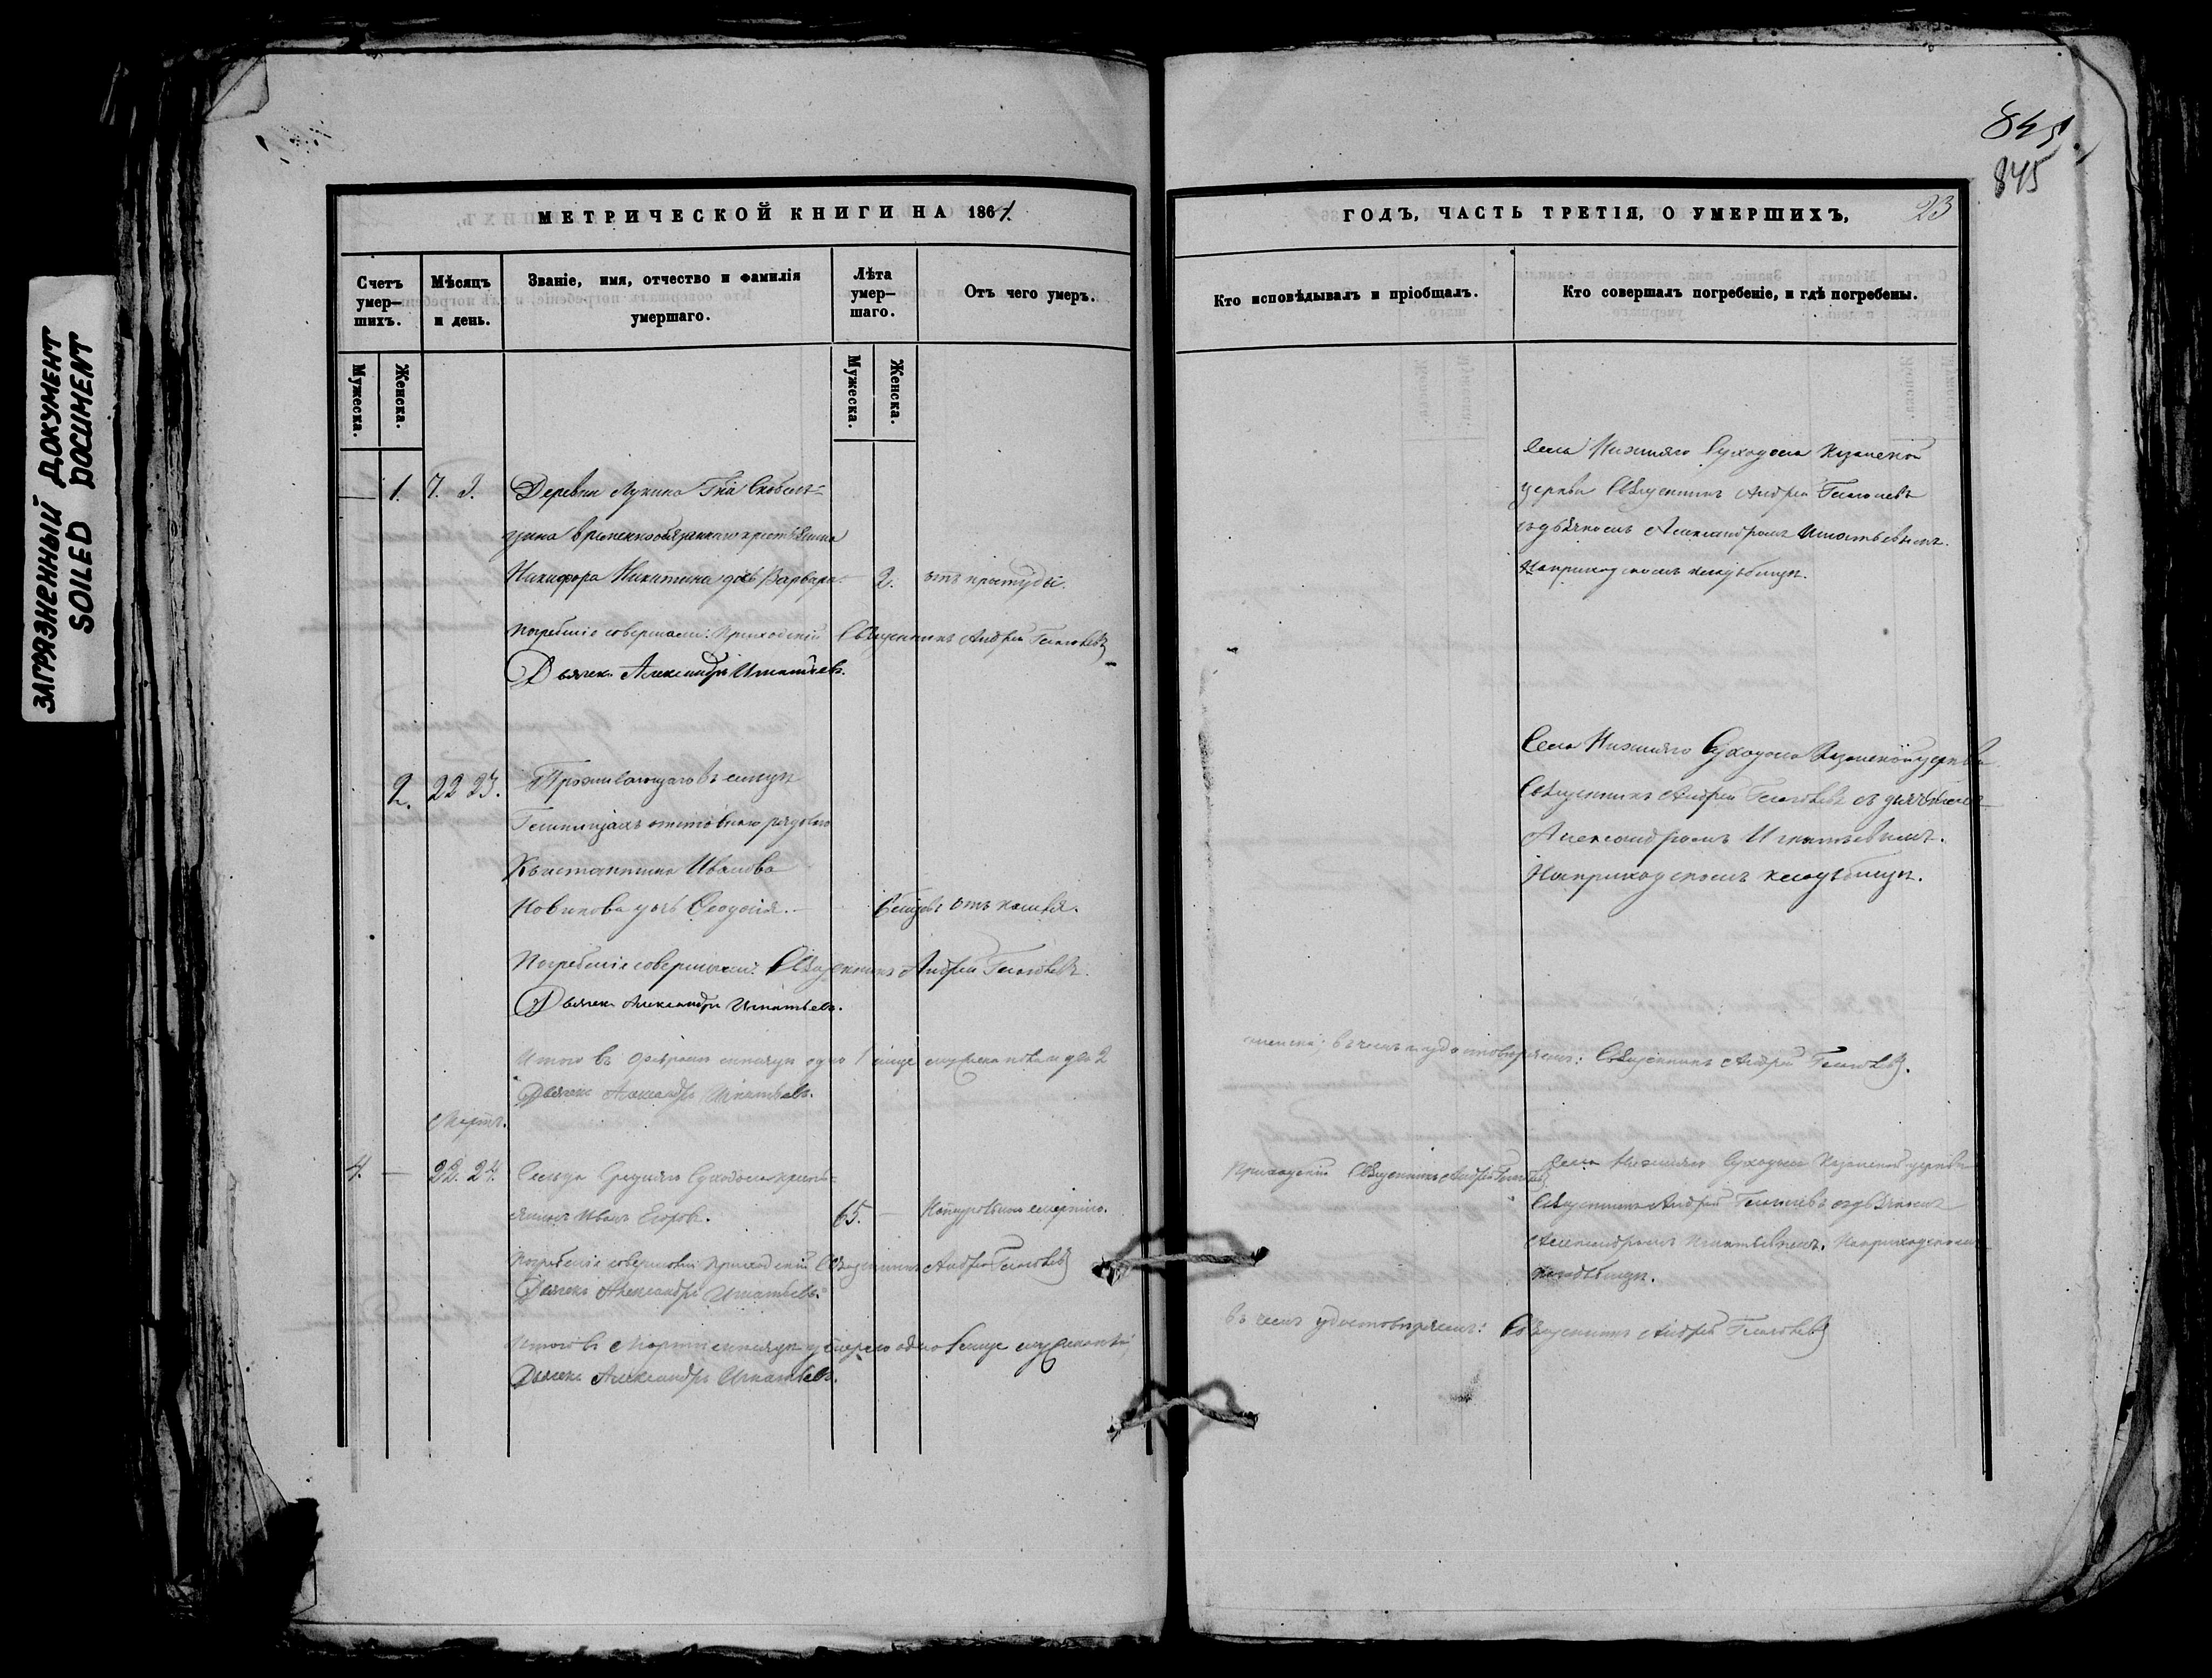 ЗАГРЯЗНЕННЫЙ ДОКУМЕНТ
SOILED DOCUMENT
845
845
МЕТРИЧЕСКОЙ КНИГИ НА 1861.
Счетъ умер-шихъ.
Мѣсяцъ и день.
Званіе, имя, отчество и фамилія умершаго.
Лѣта умер-шаго.
Отъ чего умеръ.
Мужеска.
Женска.
Мужеска.
Женска.
1. 7. 9. Деревни Лукина Гна
временнообязаннаго крестьянина
Никифора Никитина дочь Варвара 2. отъ простуды.
Погребеніе совершали: Приходскій Священникъ Андрей
Дьячекъ Александръ Игнатьевъ.
2. 22 23. Проживающаго въ сельцѣ
рядоваго
Константина Иванова
Новикова дочь Ѳеодосія. отъ кашля.
Погребеніе совершали: Священникъ Андрей
Дьячекъ Александръ Игнатьевъ.
Итого въ Февралѣ мѣсяцѣ одно 1 мужеска пола и два 2
Дьячекъ Александръ Игнатьевъ.
Мартъ.
4. — 22. 24. Сельца Средняго Суходола кресть=
янинъ Иванъ Егоровъ. 65. — Натуральною смертію.
Погребеніе совершали Приходскій Священникъ Андрей
Дьячекъ Александръ Игнатьевъ.
Итого въ Мартѣ мѣсяцѣ умерло одно 1 лице мужеска
Дьячекъ Александръ Игнатьевъ.
ГОДЪ, ЧАСТЬ ТРЕТІЯ, О УМЕРШИХЪ,
23
Кто исповѣдывалъ и пріобщалъ.
Кто совершалъ погребеніе, и гдѣ погребены.
Села Нижняго Суходола Казанской
церкви Священникъ Андрей
съ дьячкомъ Александромъ Игнатьевымъ.
На приходскомъ кладбищѣ.
Села Нижняго Суходола Казанской церкви
Священникъ Андрей съ дьячкомъ
Александромъ Игнатьевымъ.
На приходскомъ кладбищѣ.
женска; въ чемъ и удостовѣряемъ: Священникъ Андрей
Приходскій Священникъ Андрей
Села Нижняго Суходола Казанской церкви
Священникъ Андрей съ дьячкомъ
Александромъ Игнатьевымъ. На приходскомъ
кладбищѣ.
въ чемъ удостовѣряемъ: Священникъ Андрей